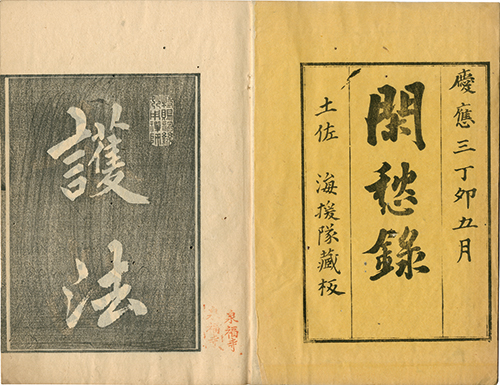 慶應三丁卯五月
閑愁錄
土佐 海援隊藏板
護法
泉福寺